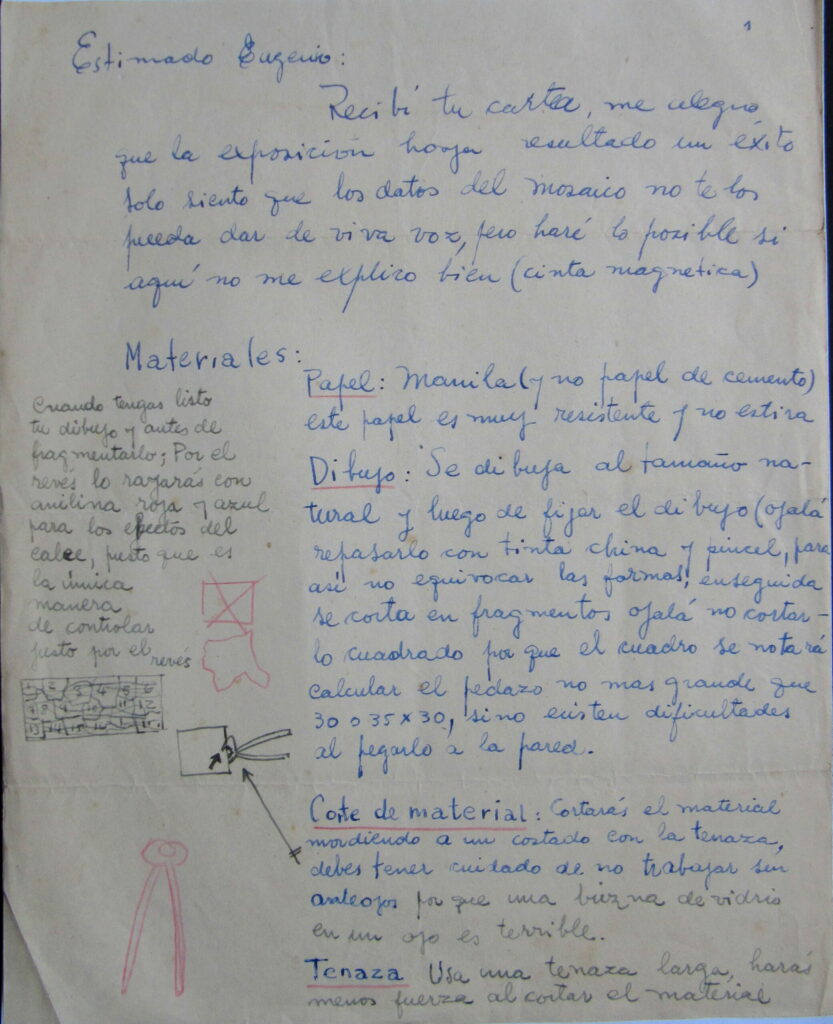 1
Estimado Eugenio:
Recibí tu carta, me alegro
que la exposición haya resultado un éxito
solo siento que los datos del mosaico no te los
pueda dar de viva voz, pero haré lo posible si
aquí no me explico bien (cinta magnética)
Materiales:
Papel: Manila (y no papel de cemento)
este papel es muy resistente y no estira
Dibujo: Se dibuja al tamaño na-
tural y luego de fijar el dibujo (ojalá
repasarlo con tinta china y pincel, para
así no equivocar las formas; enseguida
se corta en fragmentos ojalá no cortar-
lo cuadrado por que el cuadro se notará
calcular el pedazo no mas grande que
30 o 35 x 30, sino existen dificultades
al pegarlo a la pared.
Cuando tengas listo
tu dibujo y antes de
fragmentarlo; Por el
revés lo rayarás con
anilina roja y azul
para los efectos del
calce, puesto que es
la única
manera
de controlar
justo por el revés
1 2 3 4 5 6
Corte de material: Cortarás el material
mordiendo a un costado con la tenaza,
debes tener cuidado de no trabajar sin
anteojos por que una brizna de vidrio
en un ojo es terrible.
Tenaza Usa una tenaza larga, harás
menos fuerza al cortar el material